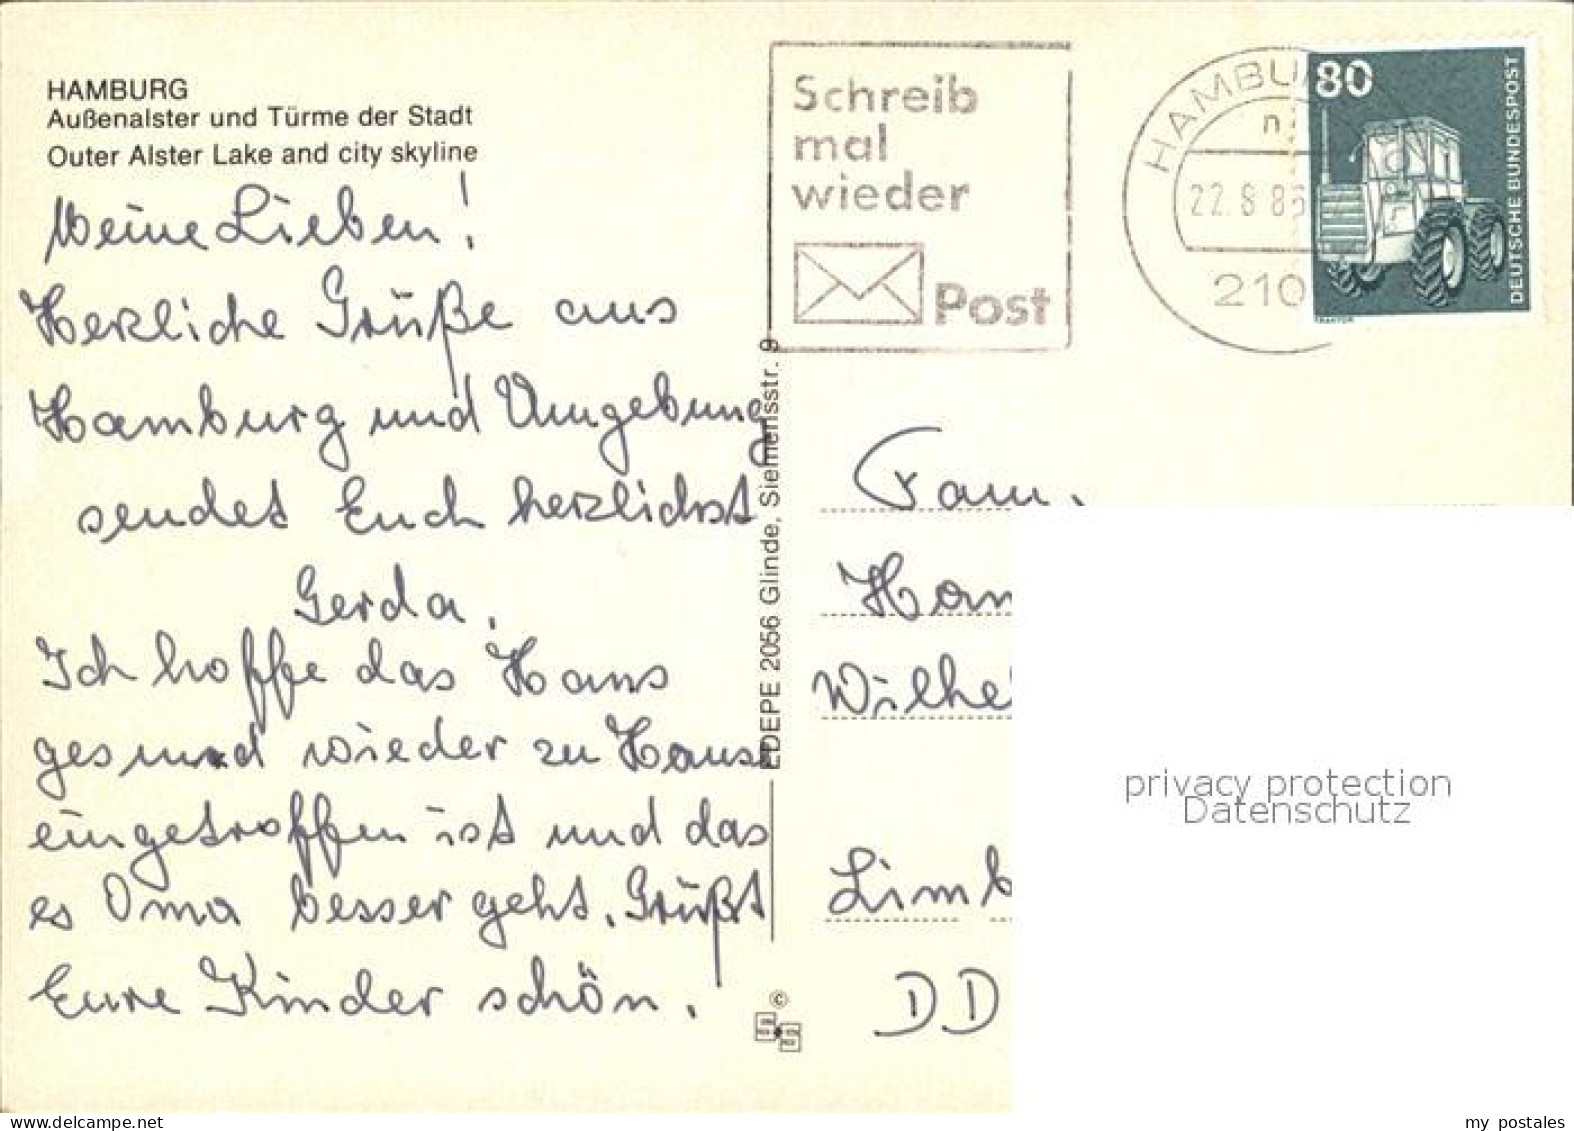 HAMBURG
Außenalster und Türme der Stadt
Outer Alster Lake and city skyline
Meine Lieben!
Herzliche Grüße aus
Hamburg und Umgebung
sendet Euch herzlichst
Gerda.
Ich hoffe das Hans
gesund wieder zu Hause
eingetroffen ist und das
es Oma besser geht. Grüßt
Eure Kinder schön.
EDEPE 2056 Glinde, Siemensstr. 9
©
Schreib
mal
wieder
Post
HAMBU
22.8.86
210
80
DEUTSCHE BUNDESPOST
TRAKTOR
Fam.
Han
Wilhe
Limb
DD
privacy protection
Datenschutz
www.delcampe.net
my postales